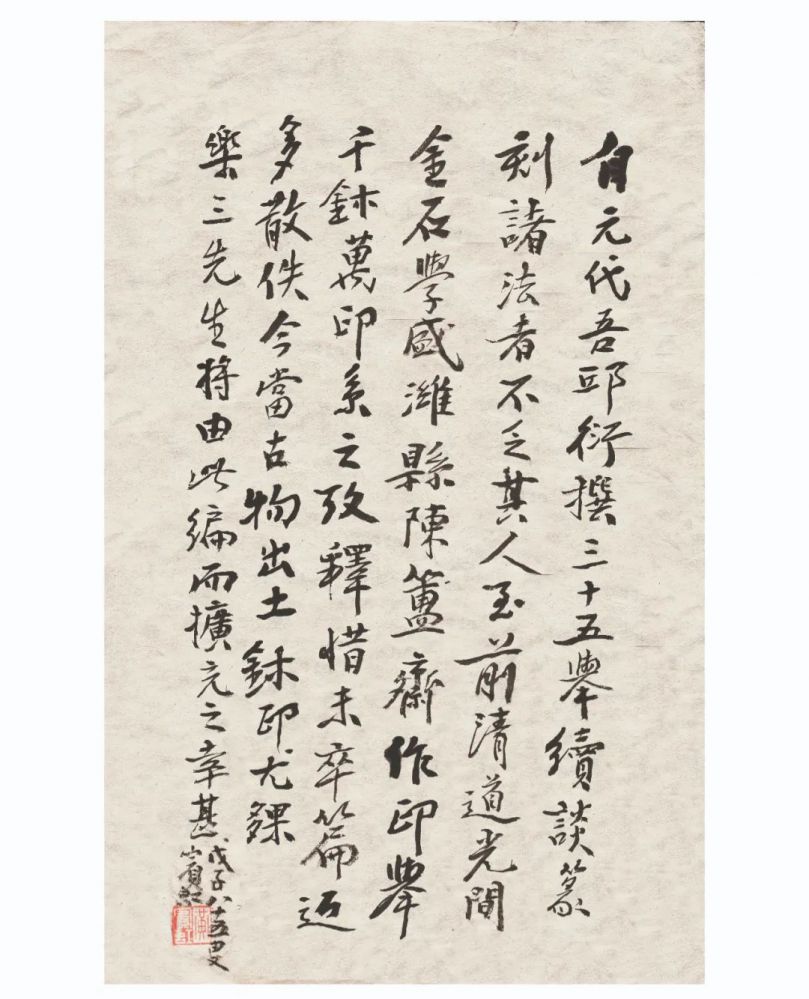 自元代吾邱衍撰三十五舉續談篆
刻諸法者不乏其人至前清道光間
金石學盛濰縣陳簠齋作印舉
千鉨萬印系之攷釋惜未卒篇近
多散佚今當古物出土鉨印尤夥
樂三先生將由此編而擴充之幸甚
戊子八十五叟
賓虹